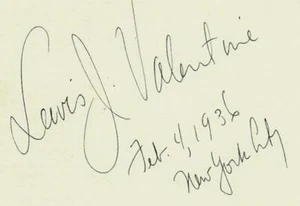 Lewis J. Valentine
Feb. 4, 1936
New York City